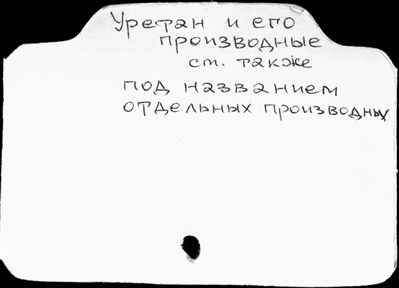 Уретан и его
производные
см. также
под названием
отдельных производных